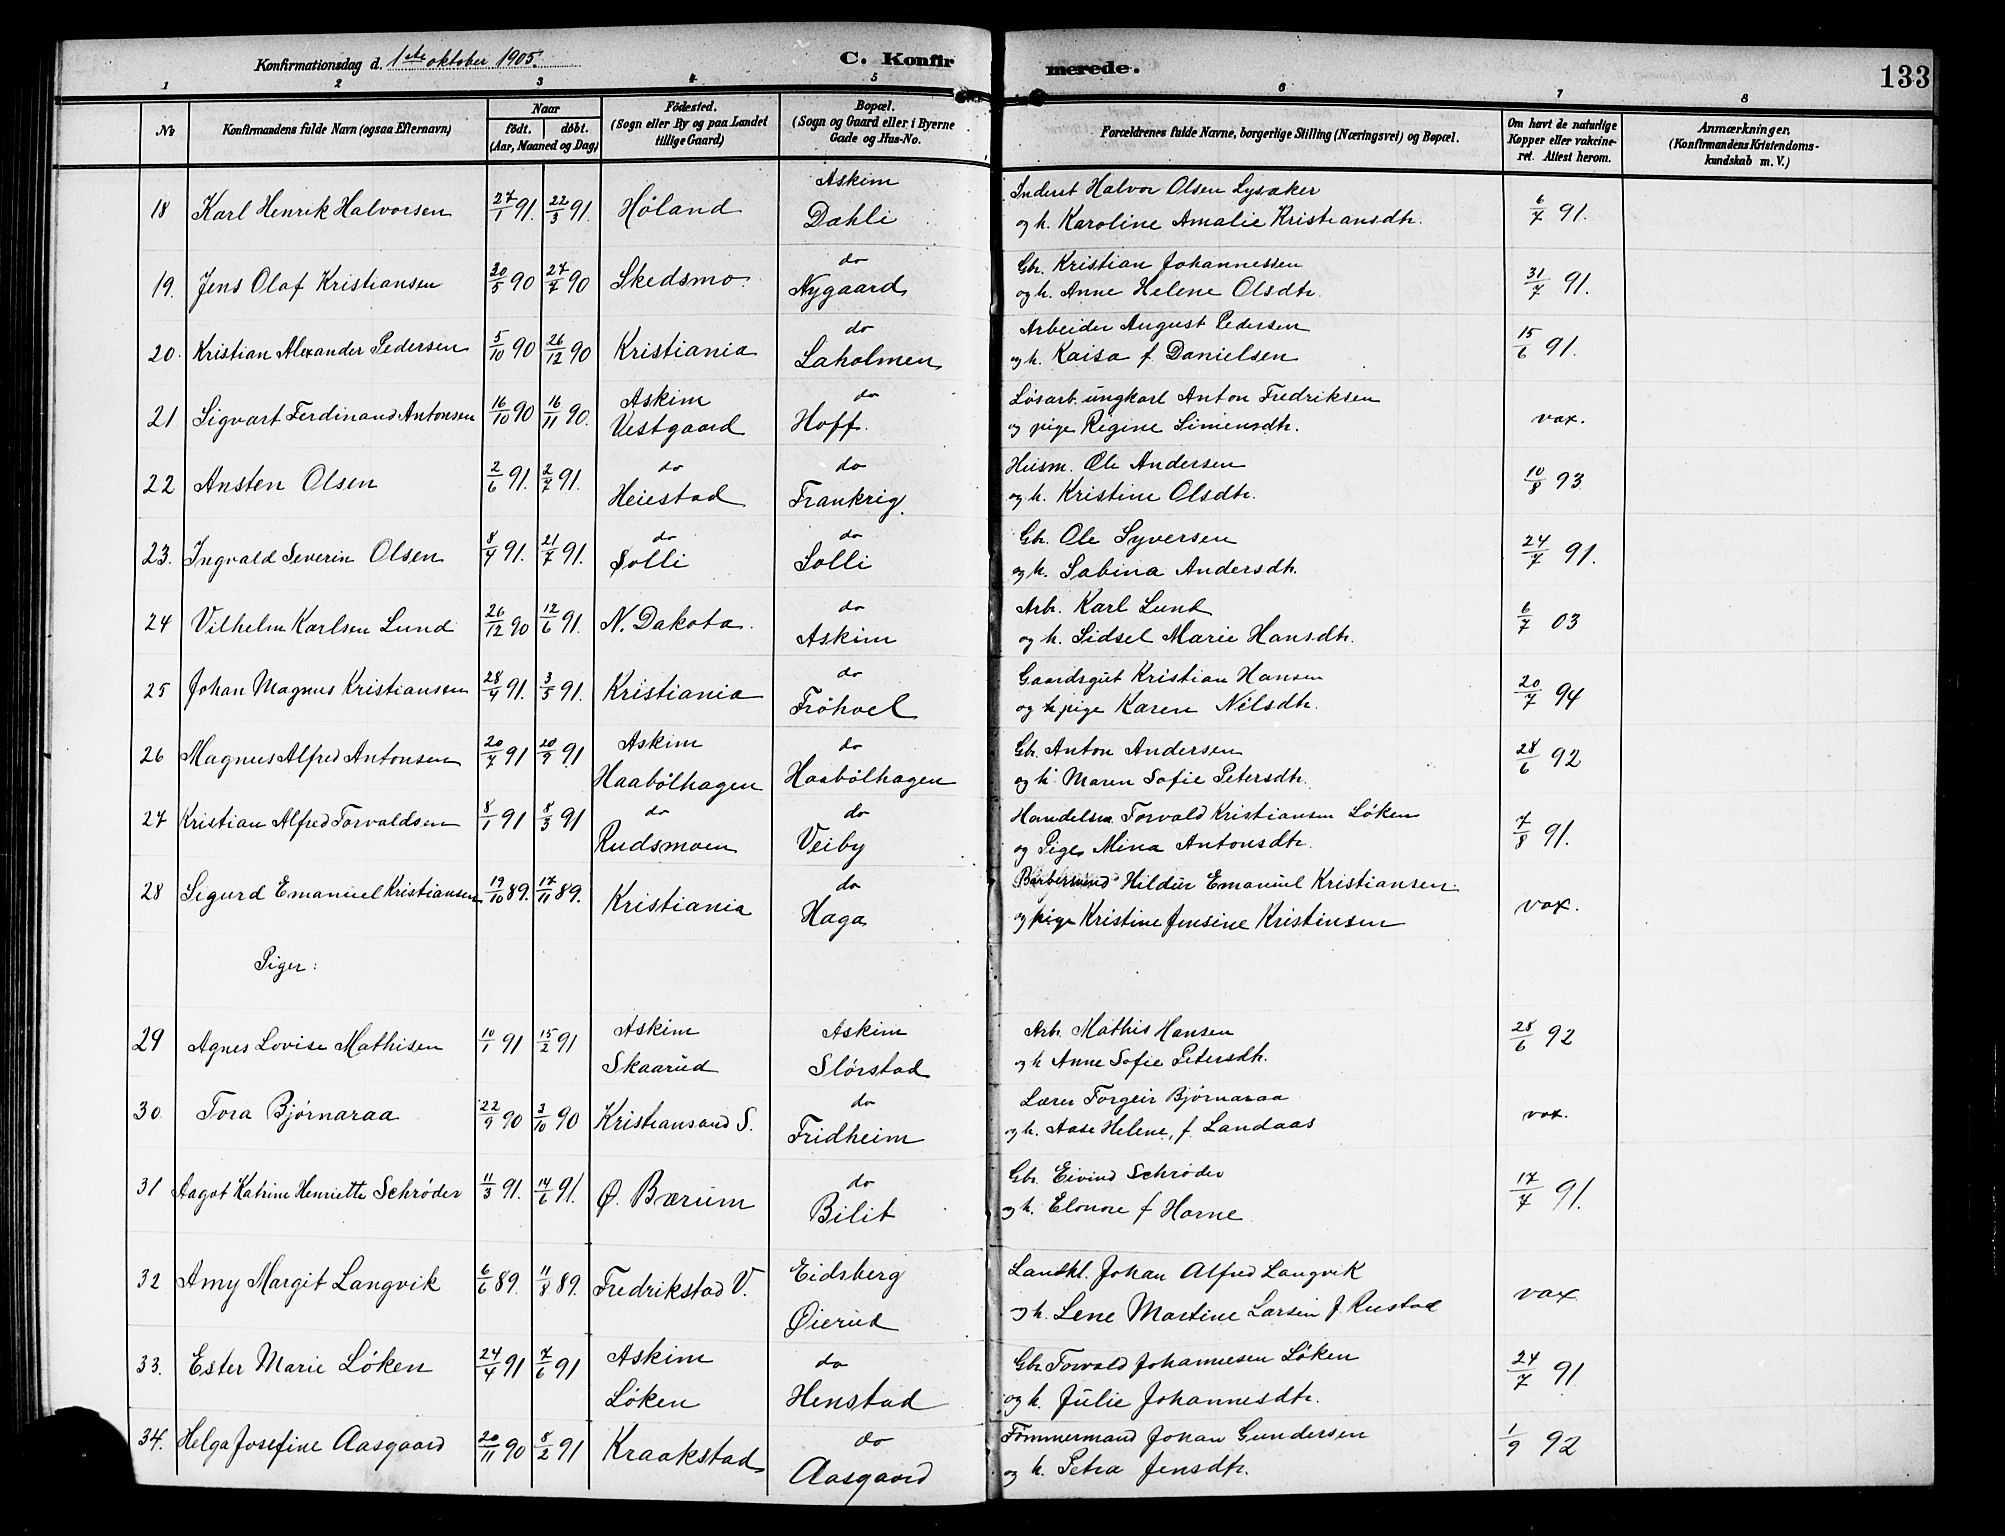 Konfirmationsdag d. 1ste oktober 1905. C. Konfirmerede. 133
1 2 3 4 5 6 7 8
No Konfirmandens fulde Navn (ogsaa Efternavn) Naar født. døbt. (Aar, Maaned og Dag) Födested. (Sogn eller By og paa Landet tillige Gaard) Bopæl. (Sogn og Gaard eller i Byerne Gade og Hus-No. Forældrenes fulde Navne, borgerlige Stilling (Næringsvei) og Bopæl. Om havt de naturlige Kopper eller vakcineret. Attest herom. Anmærkninger. (Konfirmandens Kristendomskundskab m. V.)
18 Karl Henrik Halvorsen 27/1 91. 22/3 91. Høland Askim Dahli Inderst Halvor Olsen Lysaker
og h. Karoline Amalie Kristiansdtr. 6/7 91.
19. Jens Olaf Kristiansen 30/5 90 27/7 90 Skedsmo do Nygaard Gbr. Kristian Johannessen
og h. Anne Helene Olsdtr. 31/7 91.
20. Kristian Alexander Pedersen 5/10 90 26/12 90 Kristiania do Laholmen Arbeider August Pedersen
og h. Kaisa f. Danielsen 15/6 91.
21 Sigvart Ferdinand Antonsen 16/10 90 16/11 90. Askim Vestgaard do Hoff. Løsarb. ungkarl Anton Fredriksen
og pige Regine Simensdtr. vax.
22 Ansten Olsen 2/6 91. 2/7 91. do Heiestad do Frankrig. Husm. Ole Andersen
og h. Kristine Olsdtr. 10/8 93
23. Ingvald Severin Olsen 8/4 91. 21/7 91. do Solli do Solli Gbr. Ole Syversen
og h. Sabina Andersdtr. 24/7 91.
24 Vilhelm Karlsen Lund 26/12 90 12/6 91. N. Dakota. do Askim Arb. Karl Lund
og h. Sidsel Marie Hansdtr. 6/7 03
25 Johan Magnus Kristiansen 28/4 91. 3/5 91. Kristiania do Frøhoel Gaardsgut Kristian Hansen
og pige Karen Nilsdtr. 20/7 94
26 Magnus Alfred Antonsen 20/7 91 20/9 91 Askim Haabølhagen do Haabølhagen Gbr. Anton Andersen
og h. Maren Sofie Petersdtr. 28/6 92
27 Kristian Alfred Torvaldsen 8/1 91 8/3 91 do Rudsmoen do Veiby Handelsm. Torvald Kristiansen Løken
og Pige Mina Antonsdtr. 7/8 91.
28 Sigurd Emanuel Kristiansen 19/10 89. 17/11 89. Kristiania do Haga Hildur Emanuel Kristiansen.
og pige Kristine Jensine Kristensen vax.
Piger:
29 Agnes Lovise Mathisen 10/1 91 15/2 91 Askim Skaarud Askim Slørstad Arb. Mathis Hansen
og h Anne Sofie Petersdtr. 28/6 92
30 Tora Bjørnaraa 22/9 90 3/10 90 Kristiansand S. do Fridheim Lærer Torgeir Bjørnaraa
og h. Aase Helene, f. Landaas vax.
31 Aagot Katrine Henriette Schrøder 11/3 91. 14/6 91. Ø. Bærum do Bilit Gbr. Eivind Schrøder
og h. Elonore f Horne 17/7 91.
32 Amy Margit Langvik 6/6 89. 11/8 89. Fredrikstad V. Eidsberg Øierud Landhl. Johan Alfred Langvik
og h. Lene Martine Larsen f. Rustad vax
33. Ester Marie Løken 24/4 91 7/6 91 Askim Løken do Henstad Gbr. Torvald Johannesen Løken
og h. Julie Johannesdtr. 24/7 91
34. Helga Josefine Aasgaard 20/11 90 8/2 91 Kraakstad do Aasgaard Tømmermand Johan Gundersen
og h. Petra Jensdtr. 1/9 92